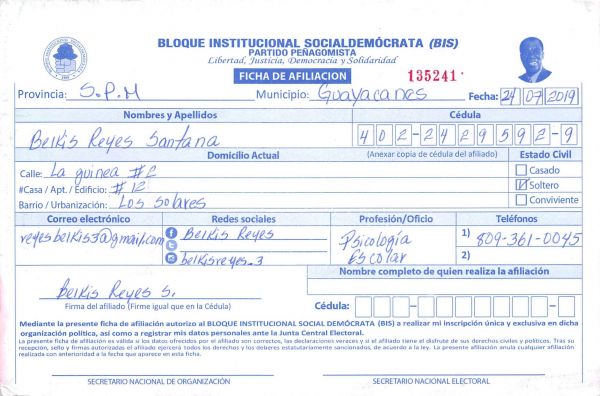 BLOQUE INSTITUCIONAL SOCIALDEMÓCRATA (BIS)
PARTIDO PEÑAGOMISTA
Libertad, Justicia, Democracia y Solidaridad
FICHA DE AFILIACION
135241
Provincia: S.P.M Municipio: Guayacanes Fecha: 24 07 2019
Nombres y Apellidos Cédula
Belkis Reyes Santana 402-2429592-9
Domicilio Actual (Anexar copia de cédula del afiliado) Estado Civil
Calle: La guinea #2 Casado
#Casa / Apt. / Edificio: #12 Soltero
Barrio / Urbanización: Los Solares Conviviente
Correo electrónico Redes sociales Profesión/Oficio Teléfonos
reyesbelkis3@gmail.com Belkis Reyes Psicología 1) 809-361-0045
belkisreyes.3 Escolar 2)
Nombre completo de quien realiza la afiliación
Belkis Reyes S.
Firma del afiliado (Firme igual que en la Cédula) Cédula:
Mediante la presente ficha de afiliación autorizo al BLOQUE INSTITUCIONAL SOCIAL DEMÓCRATA (BIS) a realizar mi inscripción única y exclusiva en dicha
organización política, así como a registrar mis datos personales ante la Junta Central Electoral.
La presente ficha de afiliación es válida si los datos ofrecidos por el afiliado son correctos, las declaraciones veraces y si el afiliado tiene el disfrute de sus derechos civiles y políticos. Tras su
recepción, sello y firmas autorizadas el afiliado ejercerá todos los derechos y los deberes estatutariamente sancionados, de acuerdo a la ley. La presente afiliación anula cualquier afiliación
realizada con anterioridad a la fecha que aparece en esta ficha.
SECRETARIO NACIONAL DE ORGANIZACIÓN SECRETARIO NACIONAL ELECTORAL